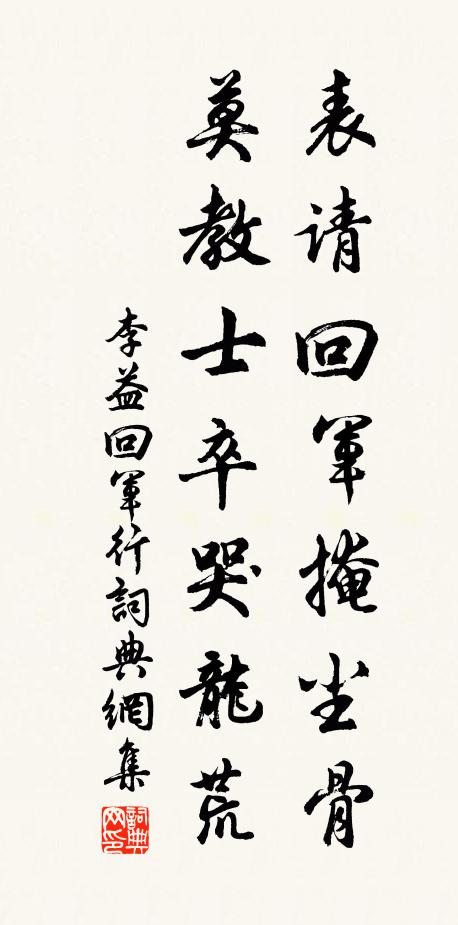 表请回軍掩尘骨
莫教士卒哭龍荒
李益回軍行詞典網集
詞典网印